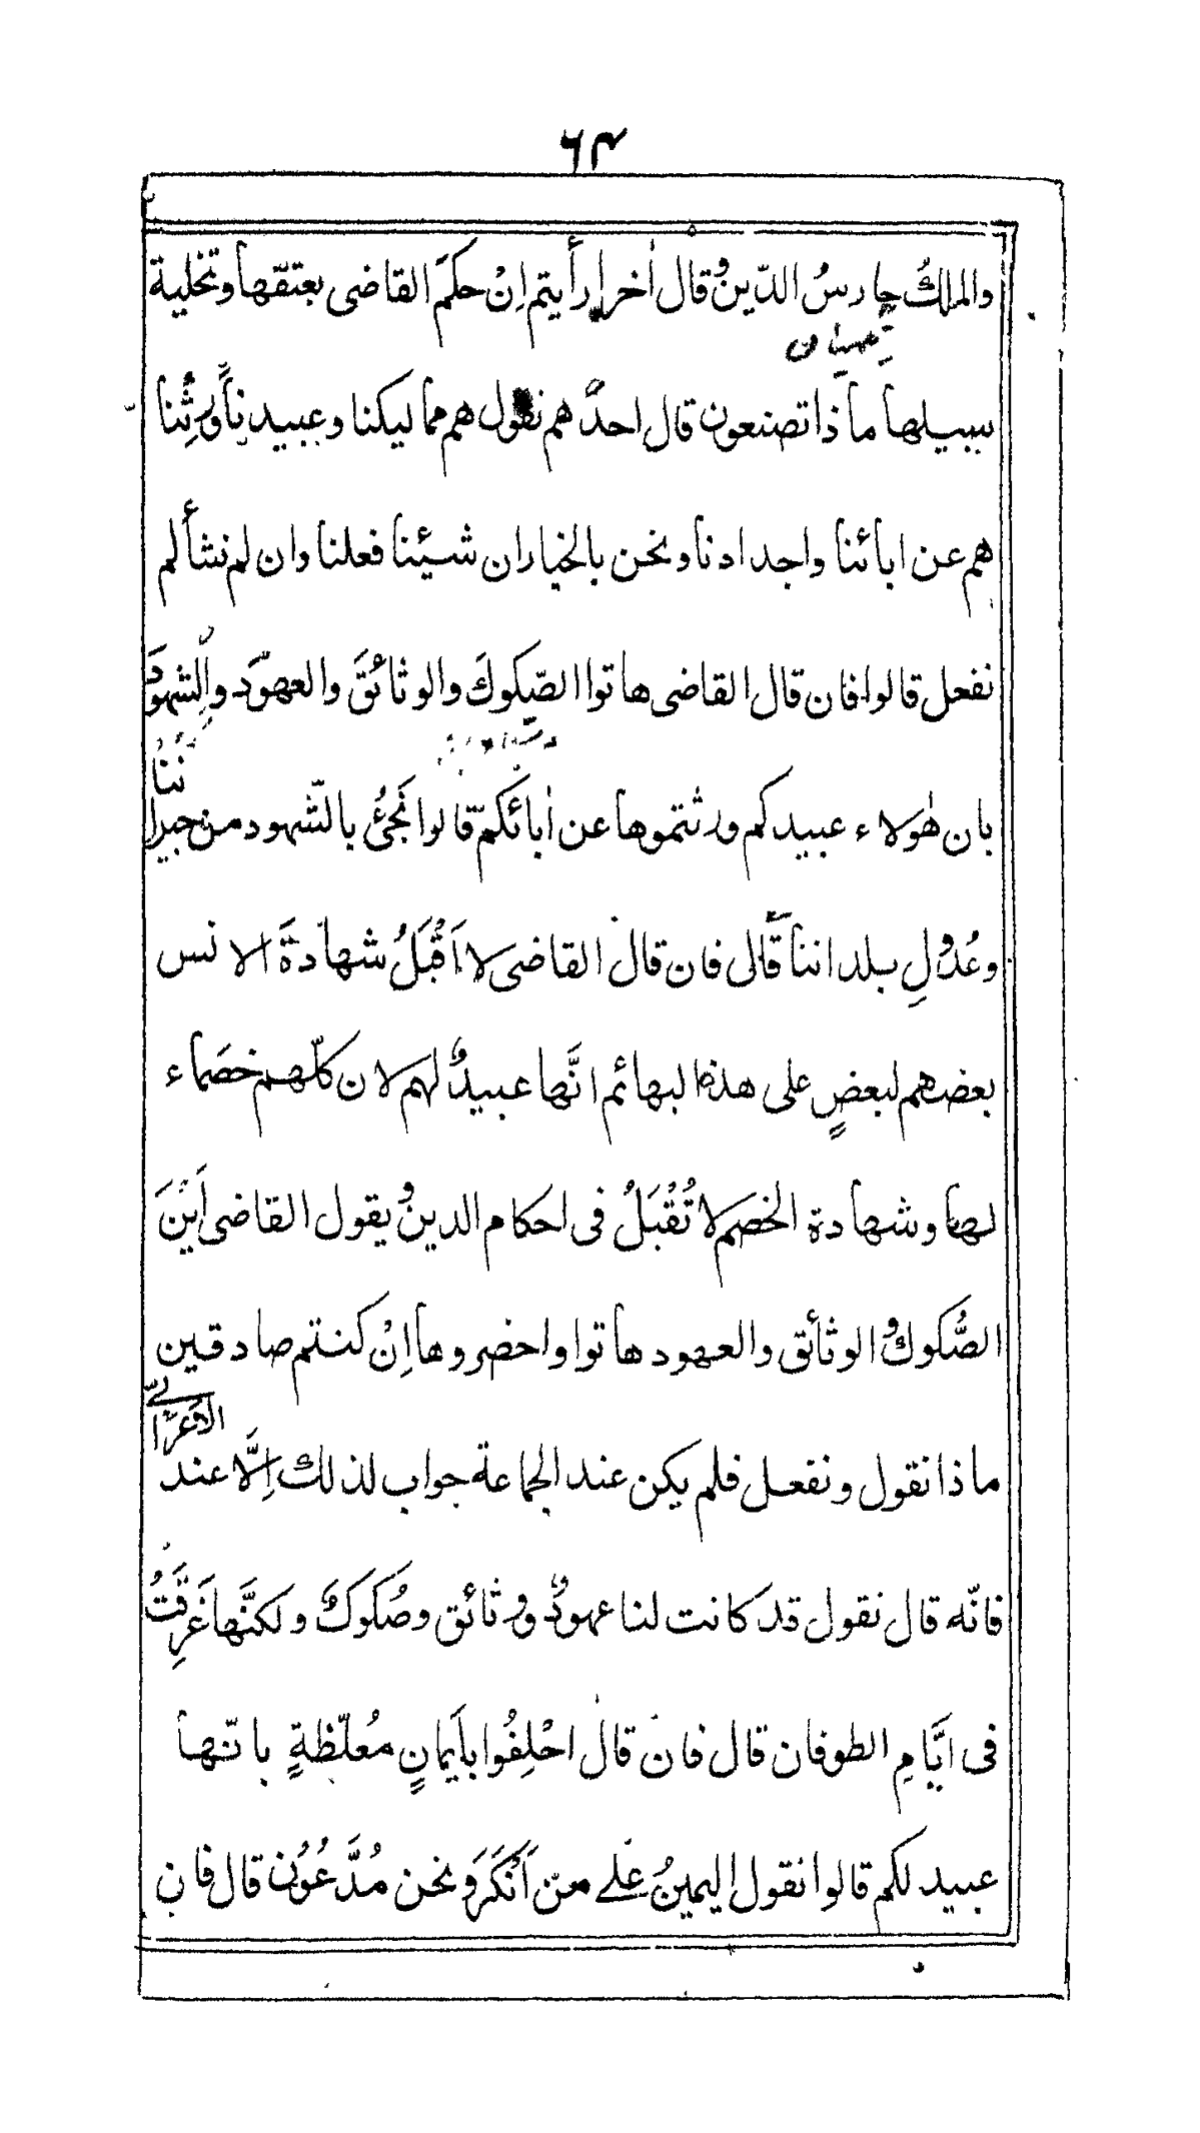 ٦٣
والملكُ حارسُ الدّينِ وقال اٰخر ارأيتم اِنْ حكمَ القاضى بعتقها وتخلية
سبيلها ما ذا تصنعون قال احدُهم نقول هم مماليكنا وعبيدنا وَرِثنا
هم عن ابائنا واجدادنا ونحن بالخيار ان شيئنا فعلنا وان لم نشألم
نفعل قالوا فان قال القاضى هاتوا الصّكوكَ والوثائقَ والعهوَد والشهودَ
بان هٰولاء عبيدكم ورثتموها عن اٰبائكم قالوا نَجئُ بالشّهود من جيراننا
وعُدُولِ بلداننا قال فان قال القاضى لا اَقْبَلُ شهادةَ الانس
بعضهم لبعضٍ على هذه البهائم انَّها عبيدٌ لهم لان كلّهم خصَماء
لها وشهادة الخصم لا تُقْبَلُ فى احكام الدين ويقول القاضى اَيْنَ
الصُّكوكُ والوثائق والعهود هاتوا واحضروها اِنْ كنتم صادقين
ماذا نقول ونفعل فلم يكن عند الجماعة جواب لذلك اِلَّا عند الاعرابى
فانّه قال نقول قد كانت لنا عهودٌ ووثائق وصُكوكٌ ولكنَّها غَرِقَتْ
فى ايَّامِ الطوفان قال فان قال احْلِفُوا باَيمانٍ مُعلّظةٍ بانّها
عبيد لكم قالوا نقول اليمينُ عَلے من اَنْكَرَ ونحن مُدَّعُوْن قال فان